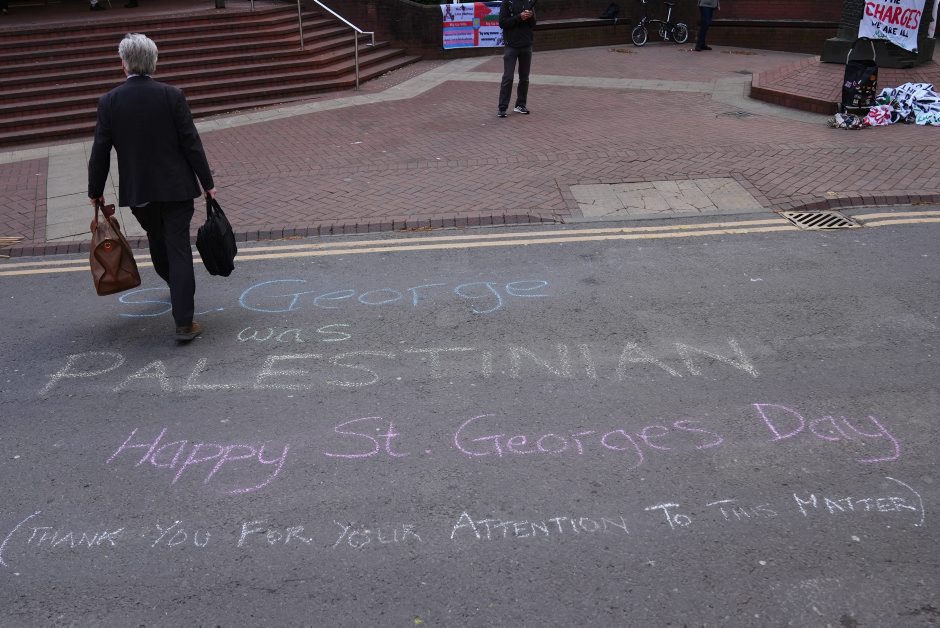 THE
CHARGES
WE ARE ALL
St. George
was
PALESTINIAN
Happy St. Georges Day
(THANK YOU FOR YOUR ATTENTION TO THIS MATTER)